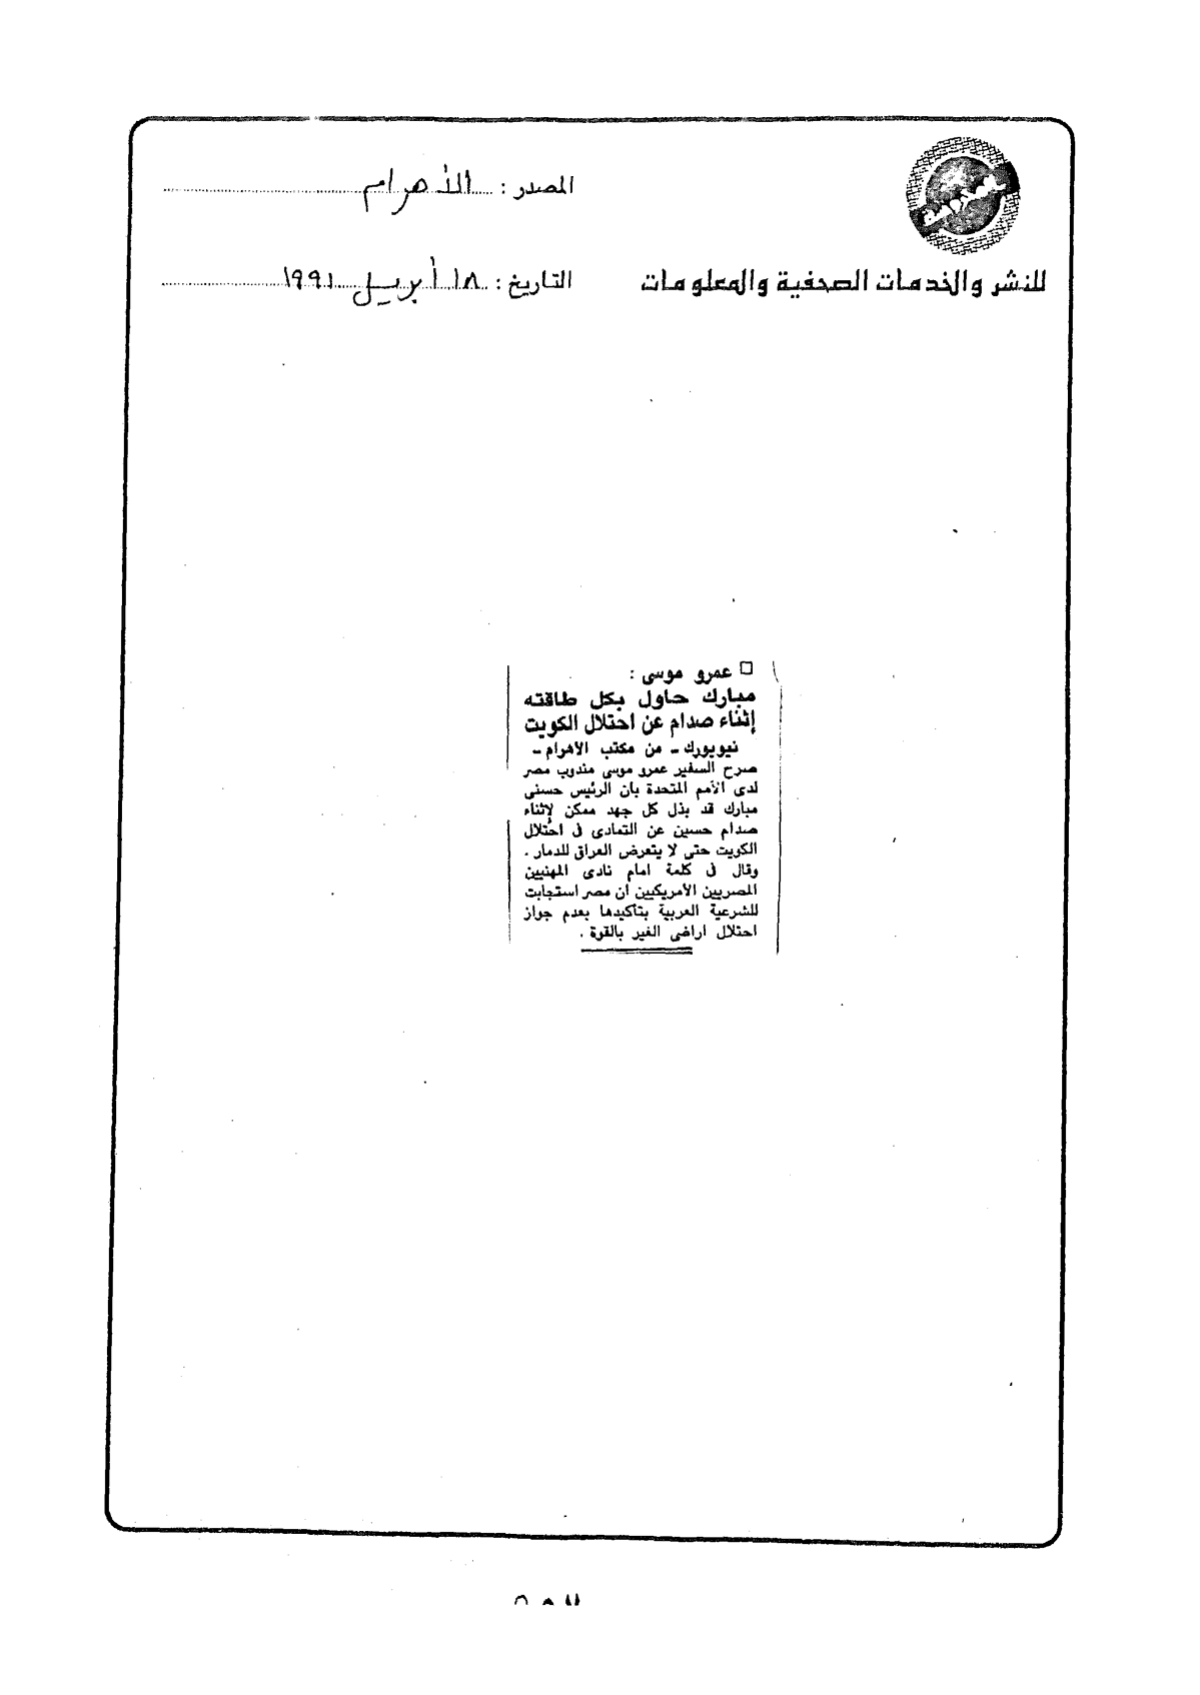 المصدر : الأهرام
للنشر والخدمات الصحفية والمعلومات
التاريخ : ١٨ أبريل ١٩٩١
عمرو موسى :
مبارك حاول بكل طاقته
إثناء صدام عن احتلال الكويت
نيويورك - من مكتب الأهرام -
صرح السفير عمرو موسى مندوب مصر
لدى الأمم المتحدة بان الرئيس حسنى
مبارك قد بذل كل جهد ممكن لإثناء
صدام حسين عن التمادى فى احتلال
الكويت حتى لا يتعرض العراق للدمار .
وقال فى كلمة امام نادى المهنيين
المصريين الأمريكيين ان مصر استجابت
للشرعية العربية بتاكيدها بعدم جواز
احتلال اراضى الغير بالقوة .